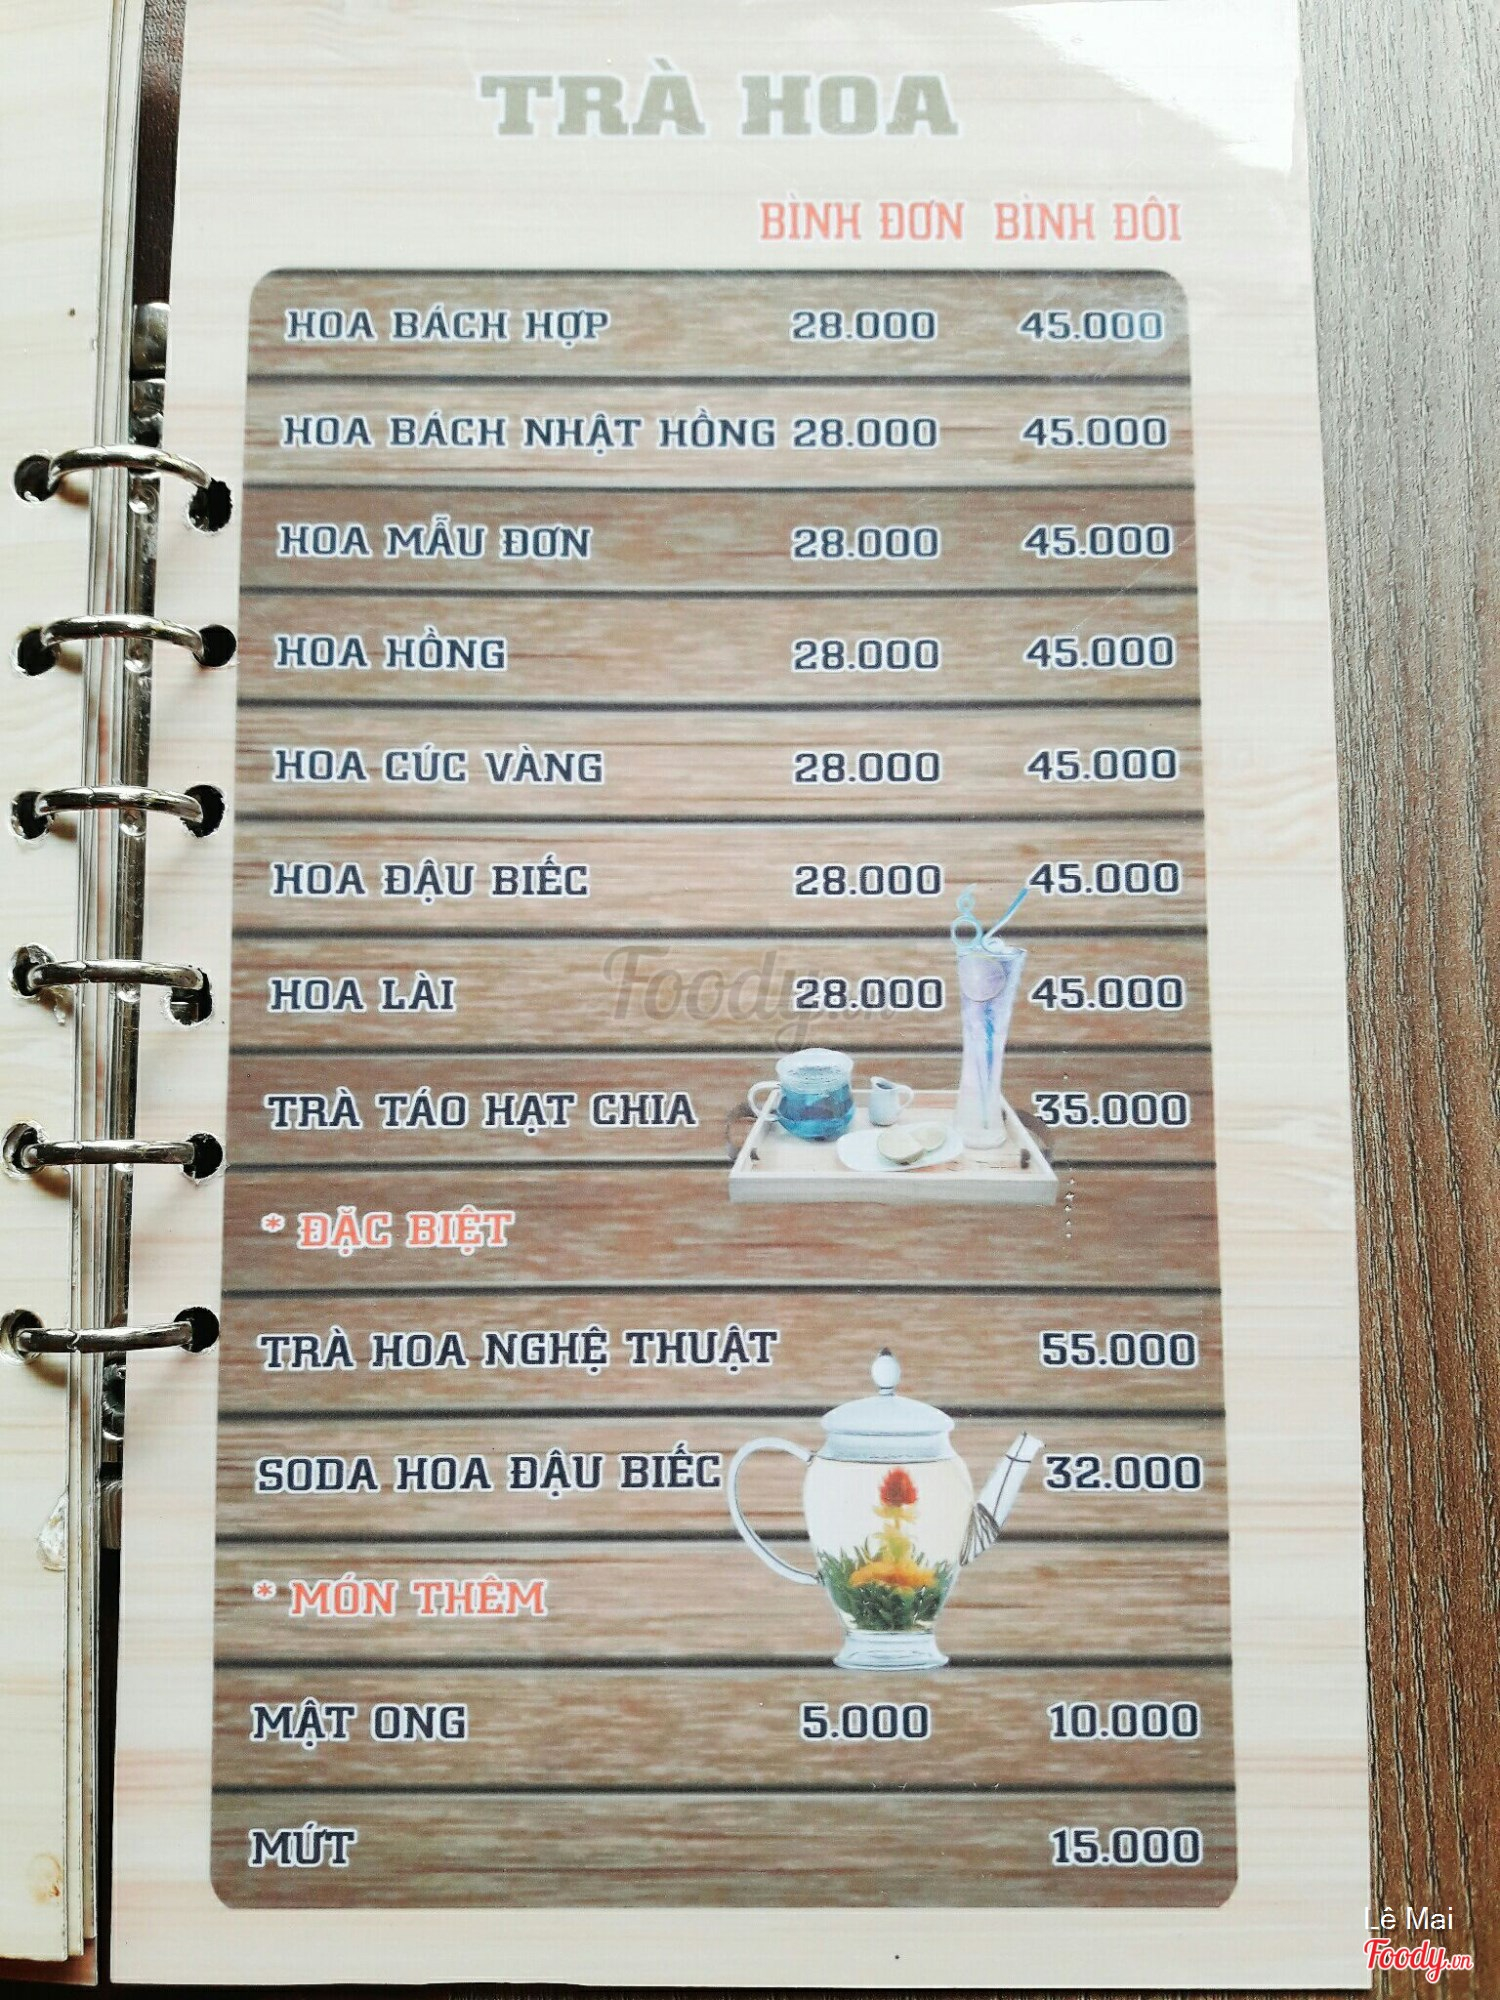 TRÀ HOA
BÌNH ĐƠN BÌNH ĐÔI
HOA BÁCH HỢP 28.000 45.000
HOA BÁCH NHẬT HỒNG 28.000 45.000
HOA MẪU ĐƠN 28.000 45.000
HOA HỒNG 28.000 45.000
HOA CÚC VÀNG 28.000 45.000
HOA ĐẬU BIẾC 28.000 45.000
HOA LÀI 28.000 45.000
Foody.vn
TRÀ TÁO HẠT CHIA 35.000
* ĐẶC BIỆT
TRÀ HOA NGHỆ THUẬT 55.000
SODA HOA ĐẬU BIẾC 32.000
* MÓN THÊM
MẬT ONG 5.000 10.000
MỨT 15.000
Lê Mai
Foody.vn